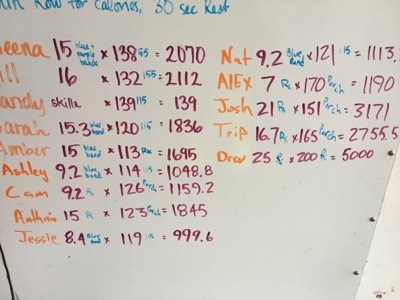 Row for Calories, 30 sec Rest
eena 15 blue + purple bands x 138 55 = 2070
ll 16 x 132 55 = 2112
andy skills x 139 115 = 139
arah 15.3 blue band x 120 115 = 1836
Amber 15 blue band x 113 Rx = 1695
Ashley 9.2 blue band x 114 115 = 1048.8
Cam 9.2 Rx x 126 = 1159.2
15 Rx x 123 = 1845
Jessie 8.4 blue band x 119 115 = 999.6
Nat 9.2 Blue Band x 121 115 = 1113.
Alex 7 Rx x 170 = 1190
Josh 21 Rx x 151 = 3171
Trip 16.7 Rx x 165 = 2755.5
Drew 25 R x 200 R = 5000